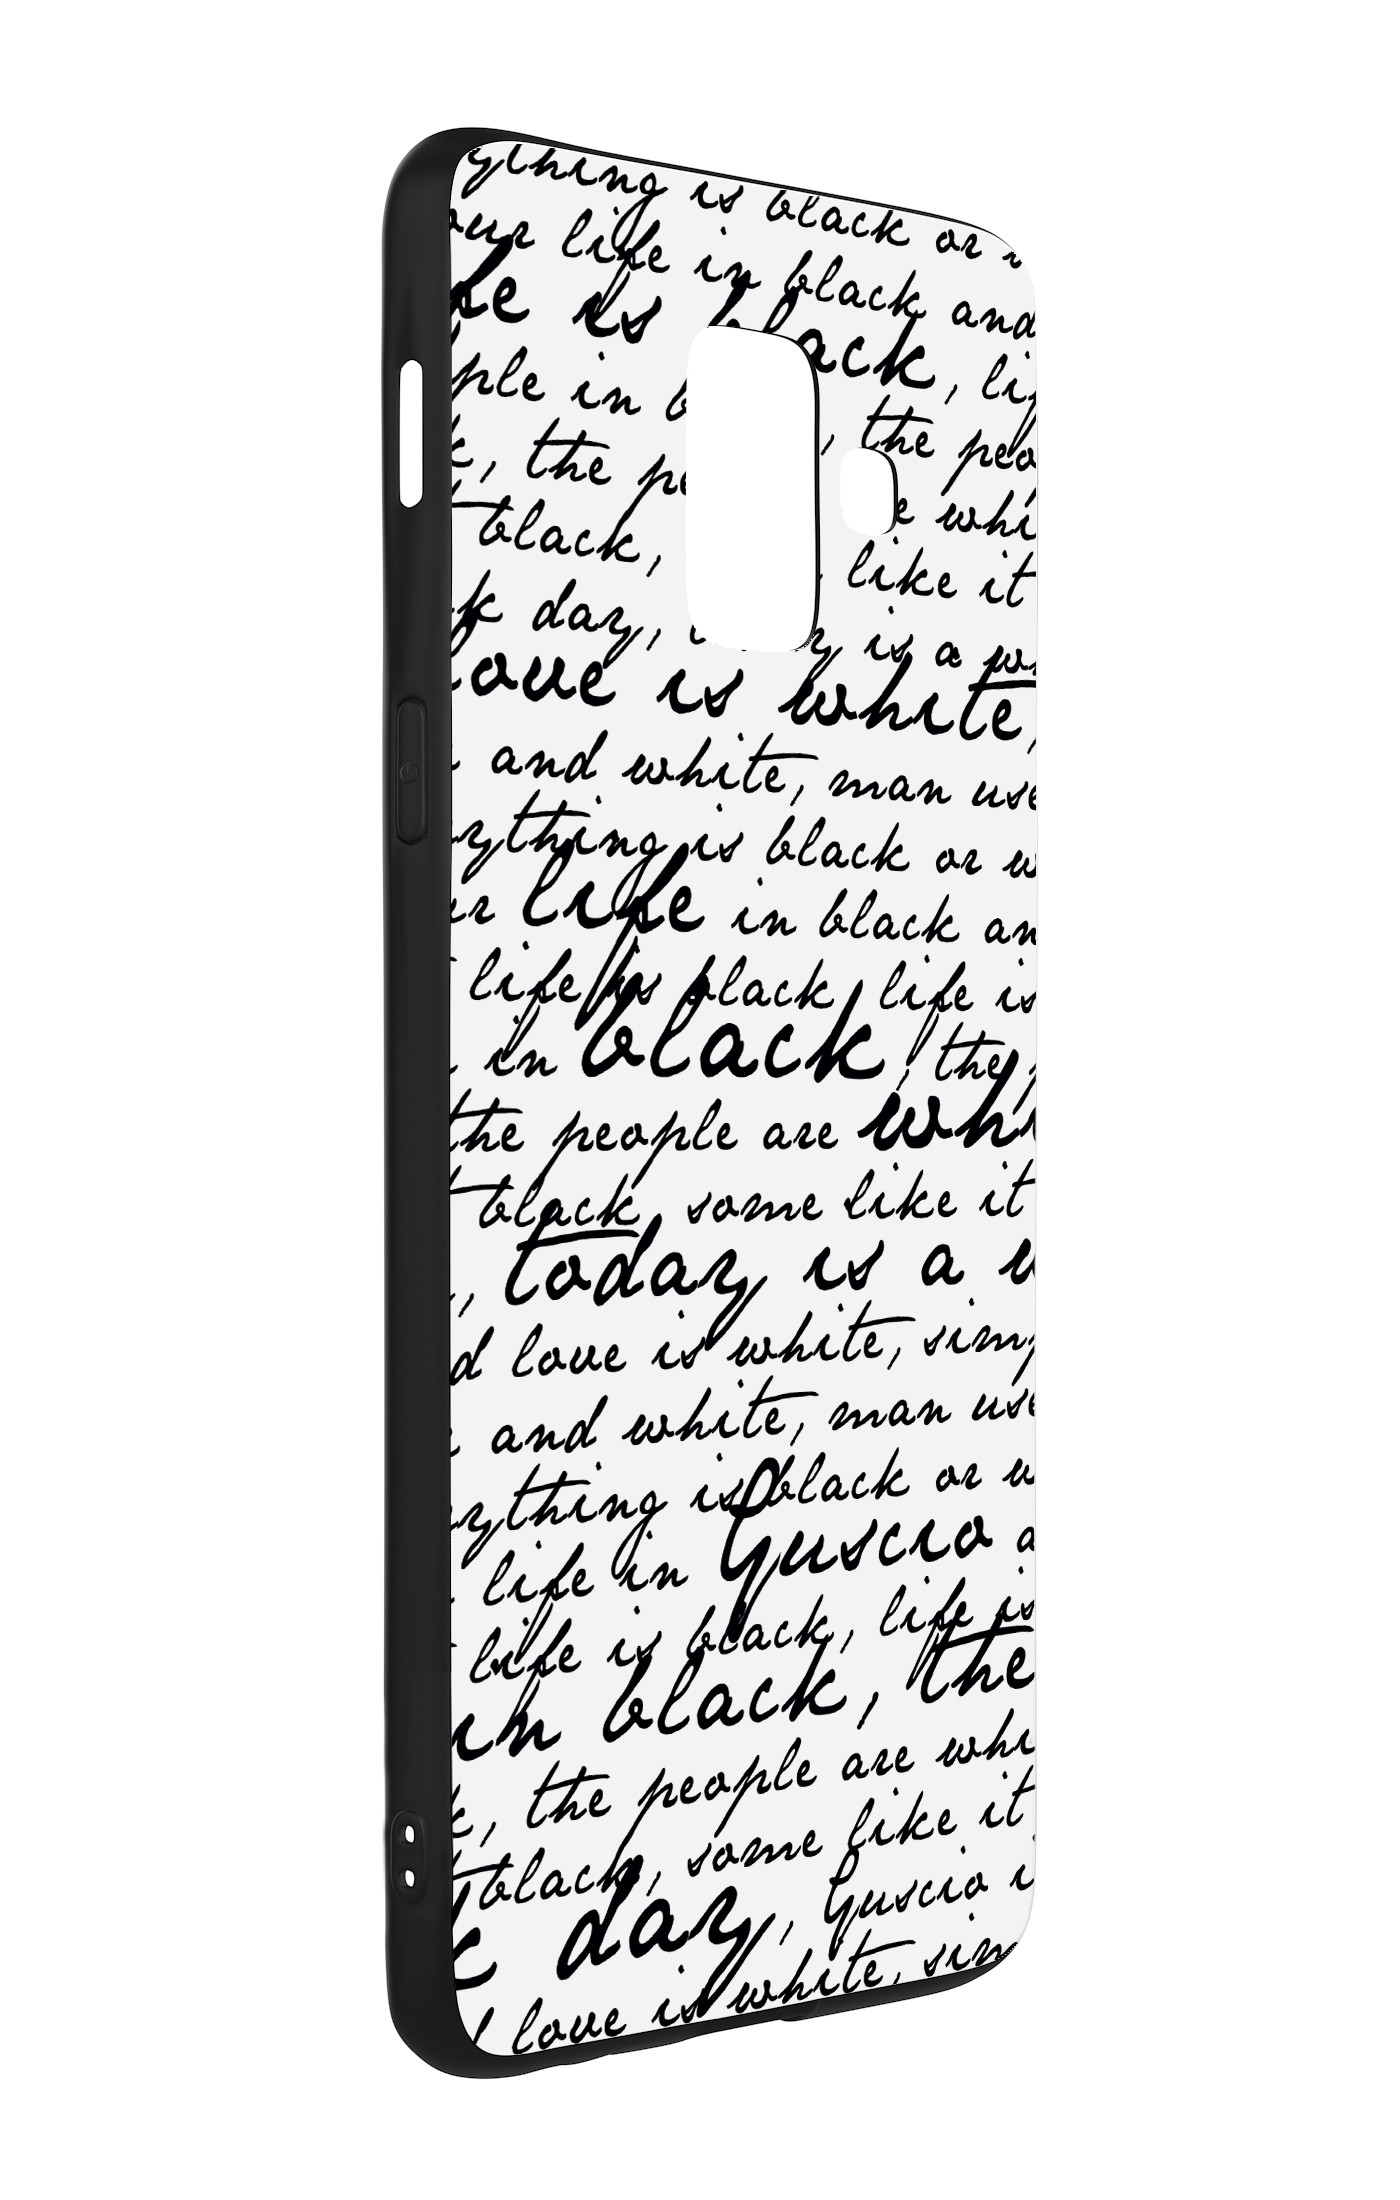 ything is black or
our life in black and
is black, li
ple in b , the peo
, the pe e whi
black, like it
k day, is a
love is white,
and white, man use
rything is black or w
ur life in black an
life is black, life is
in black, the
the people are whi
black, some like it
, today is a w
d love is white, simp
and white, man use
rything is black or w
life in Guscio a
life is black, life is
in black, the
k, the people are whi
black, some like it
k day, Guscio i
d love is white, sim